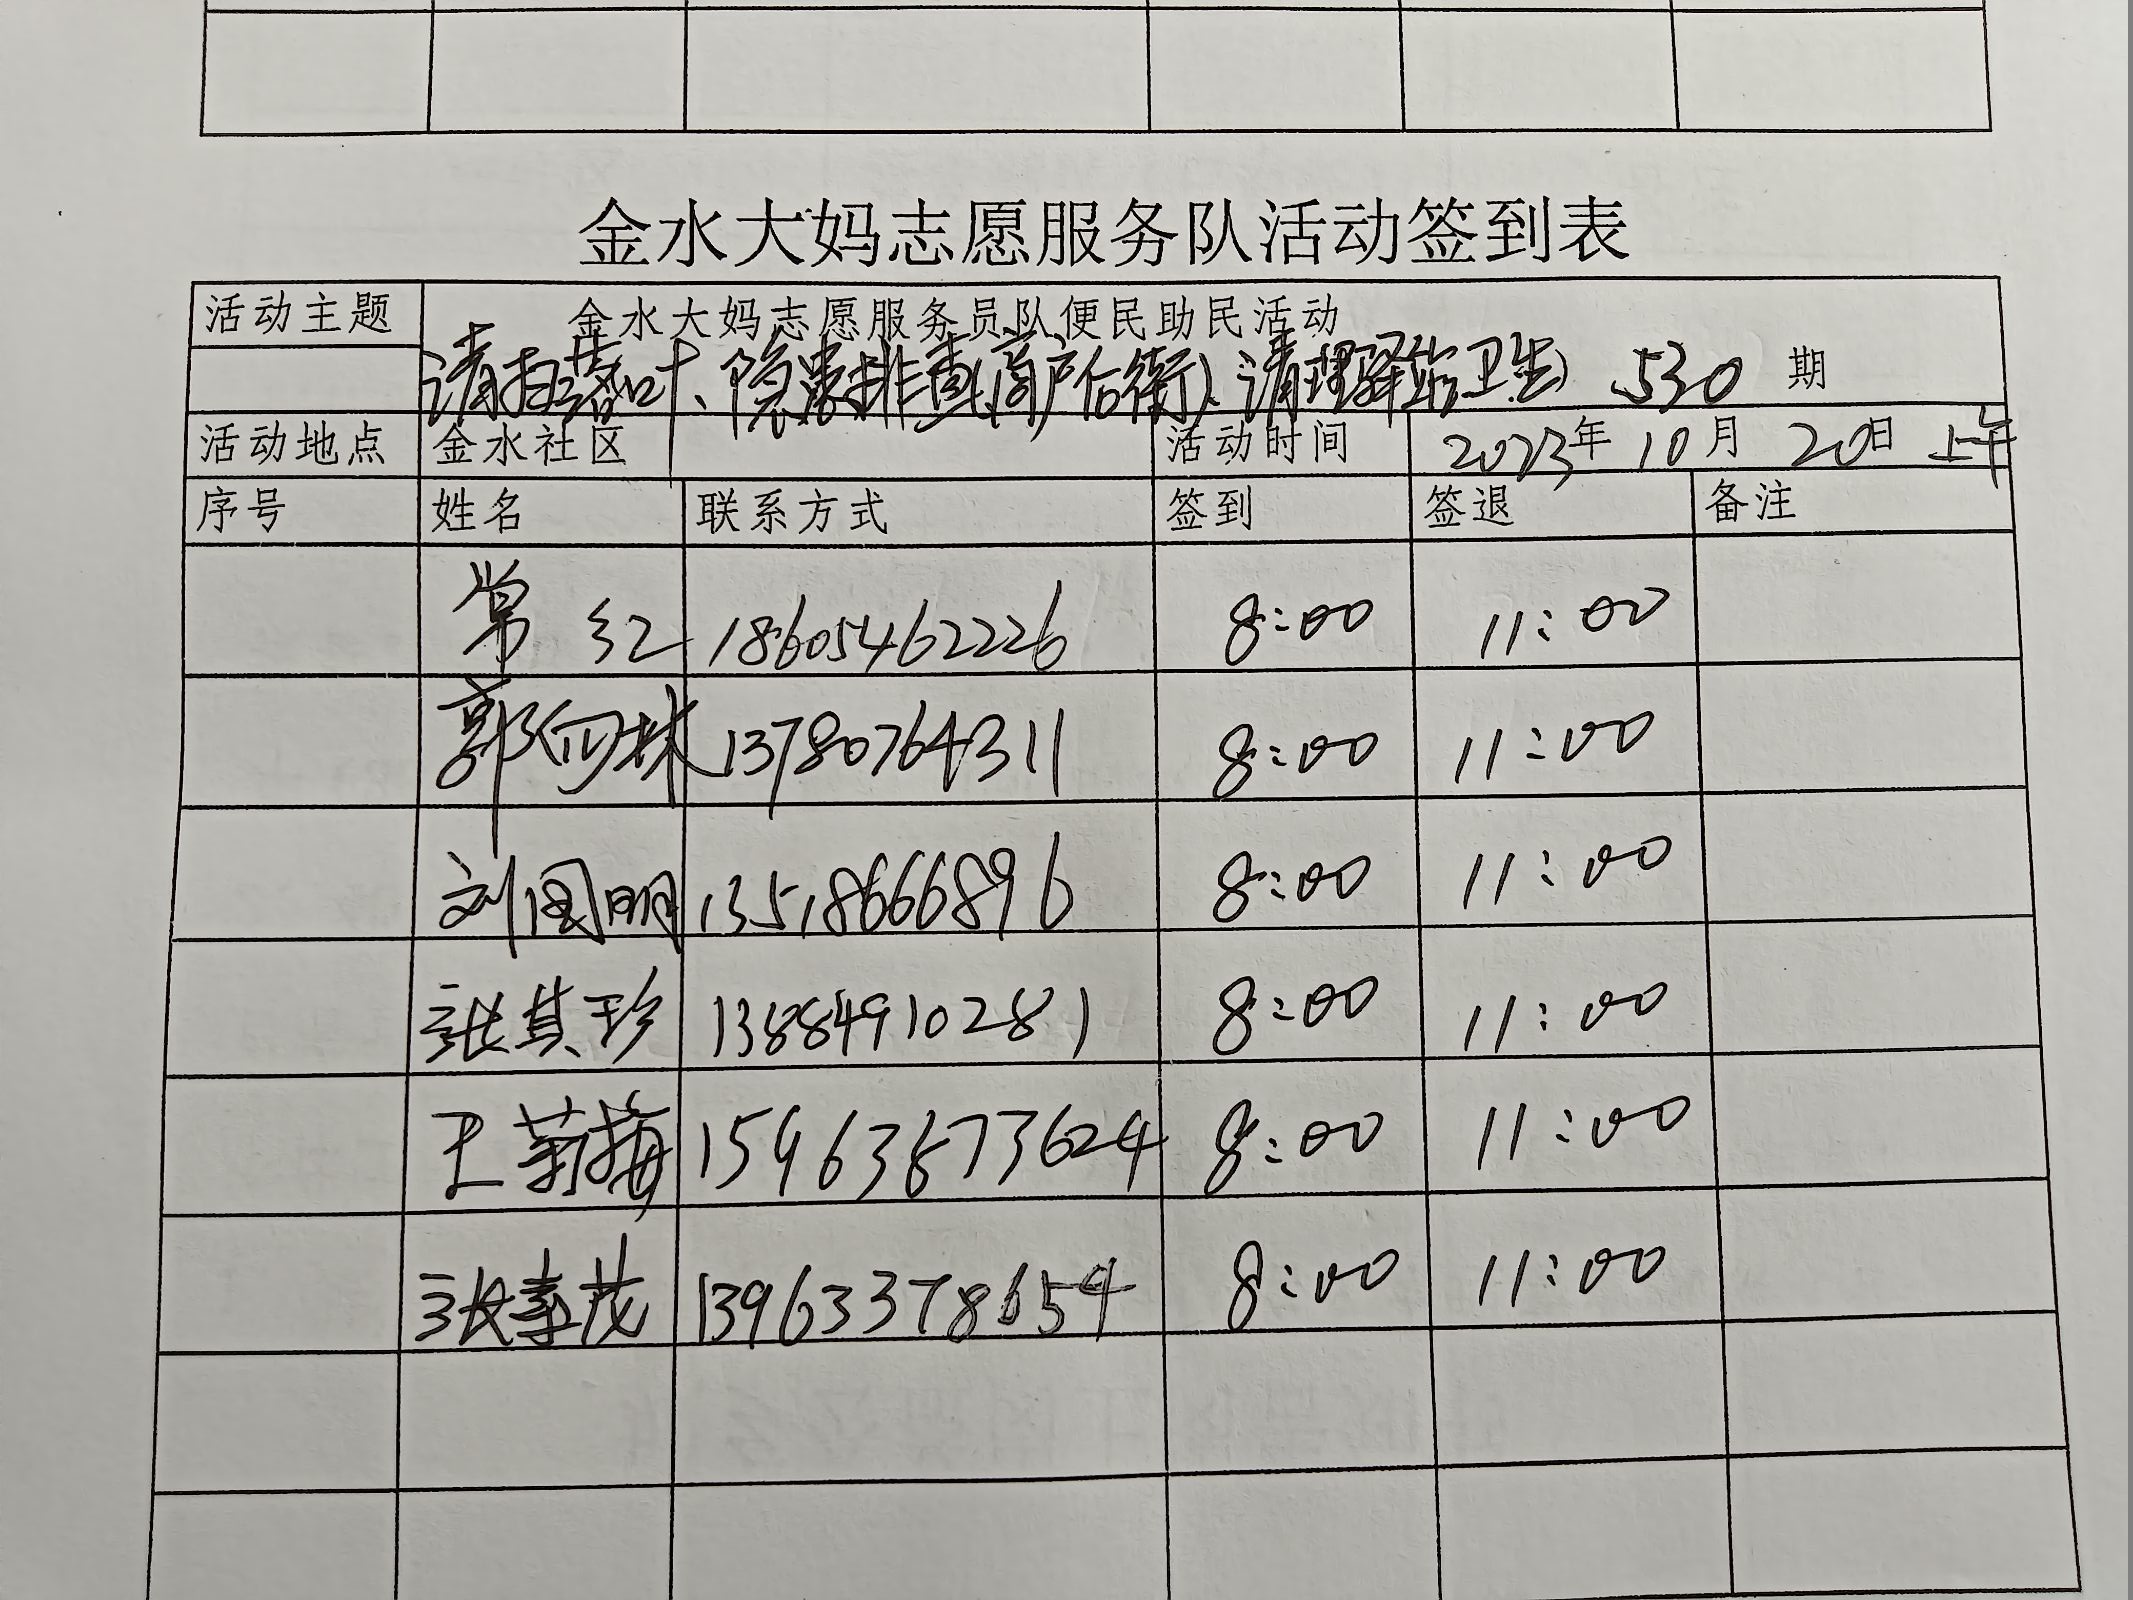 金水大妈志愿服务队活动签到表
活动主题 金水大妈志愿服务员队便民助民活动
请扫落叶、隐患排查(商户后街)、请理驿站卫生 530 期
活动地点 金水社区 活动时间 2023年 10月 20日 上午
序号 姓名 联系方式 签到 签退 备注
常红 18605462226 8:00 11:00
郭向林 13780764311 8:00 11:00
刘国明 13518666896 8:00 11:00
张其珍 13884910281 8:00 11:00
王菊梅 15963873624 8:00 11:00
张素茂 13963378654 8:00 11:00